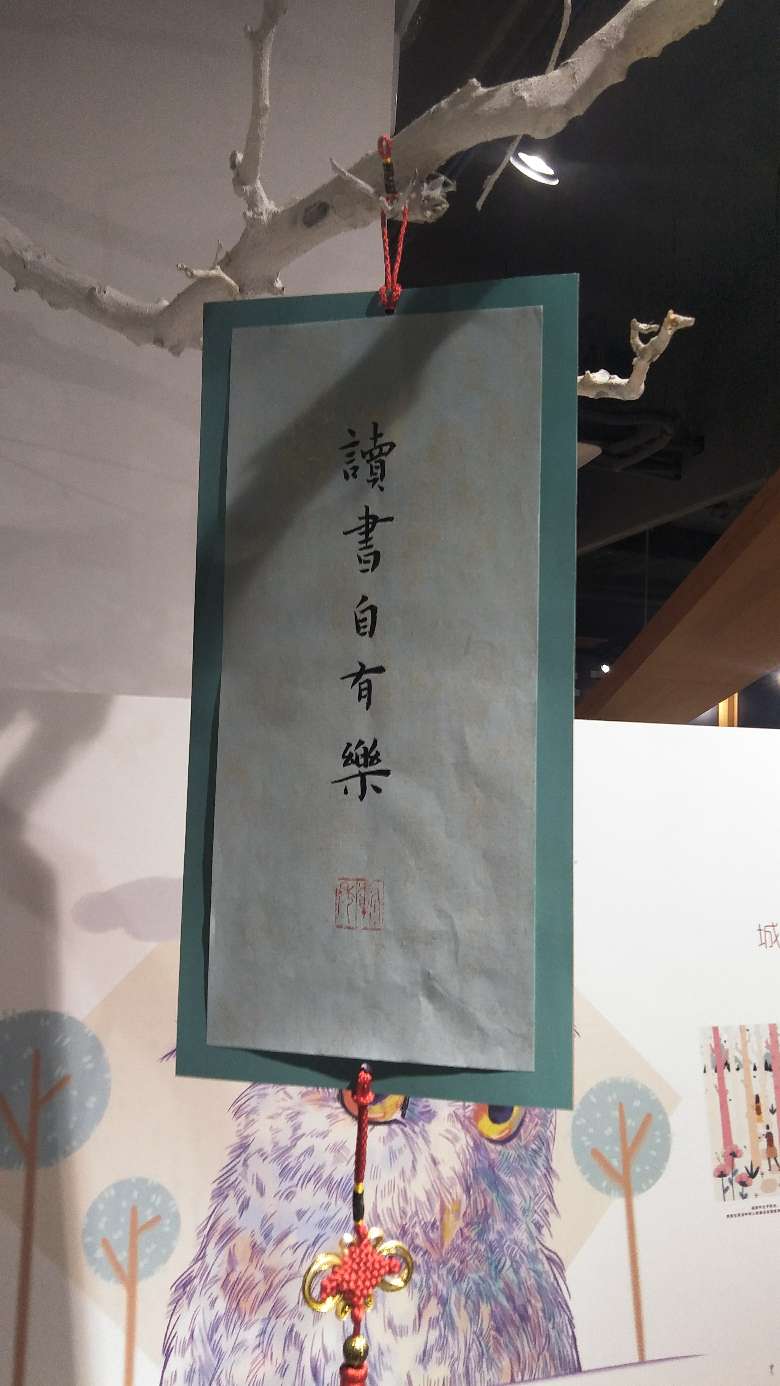 讀書自有樂
城